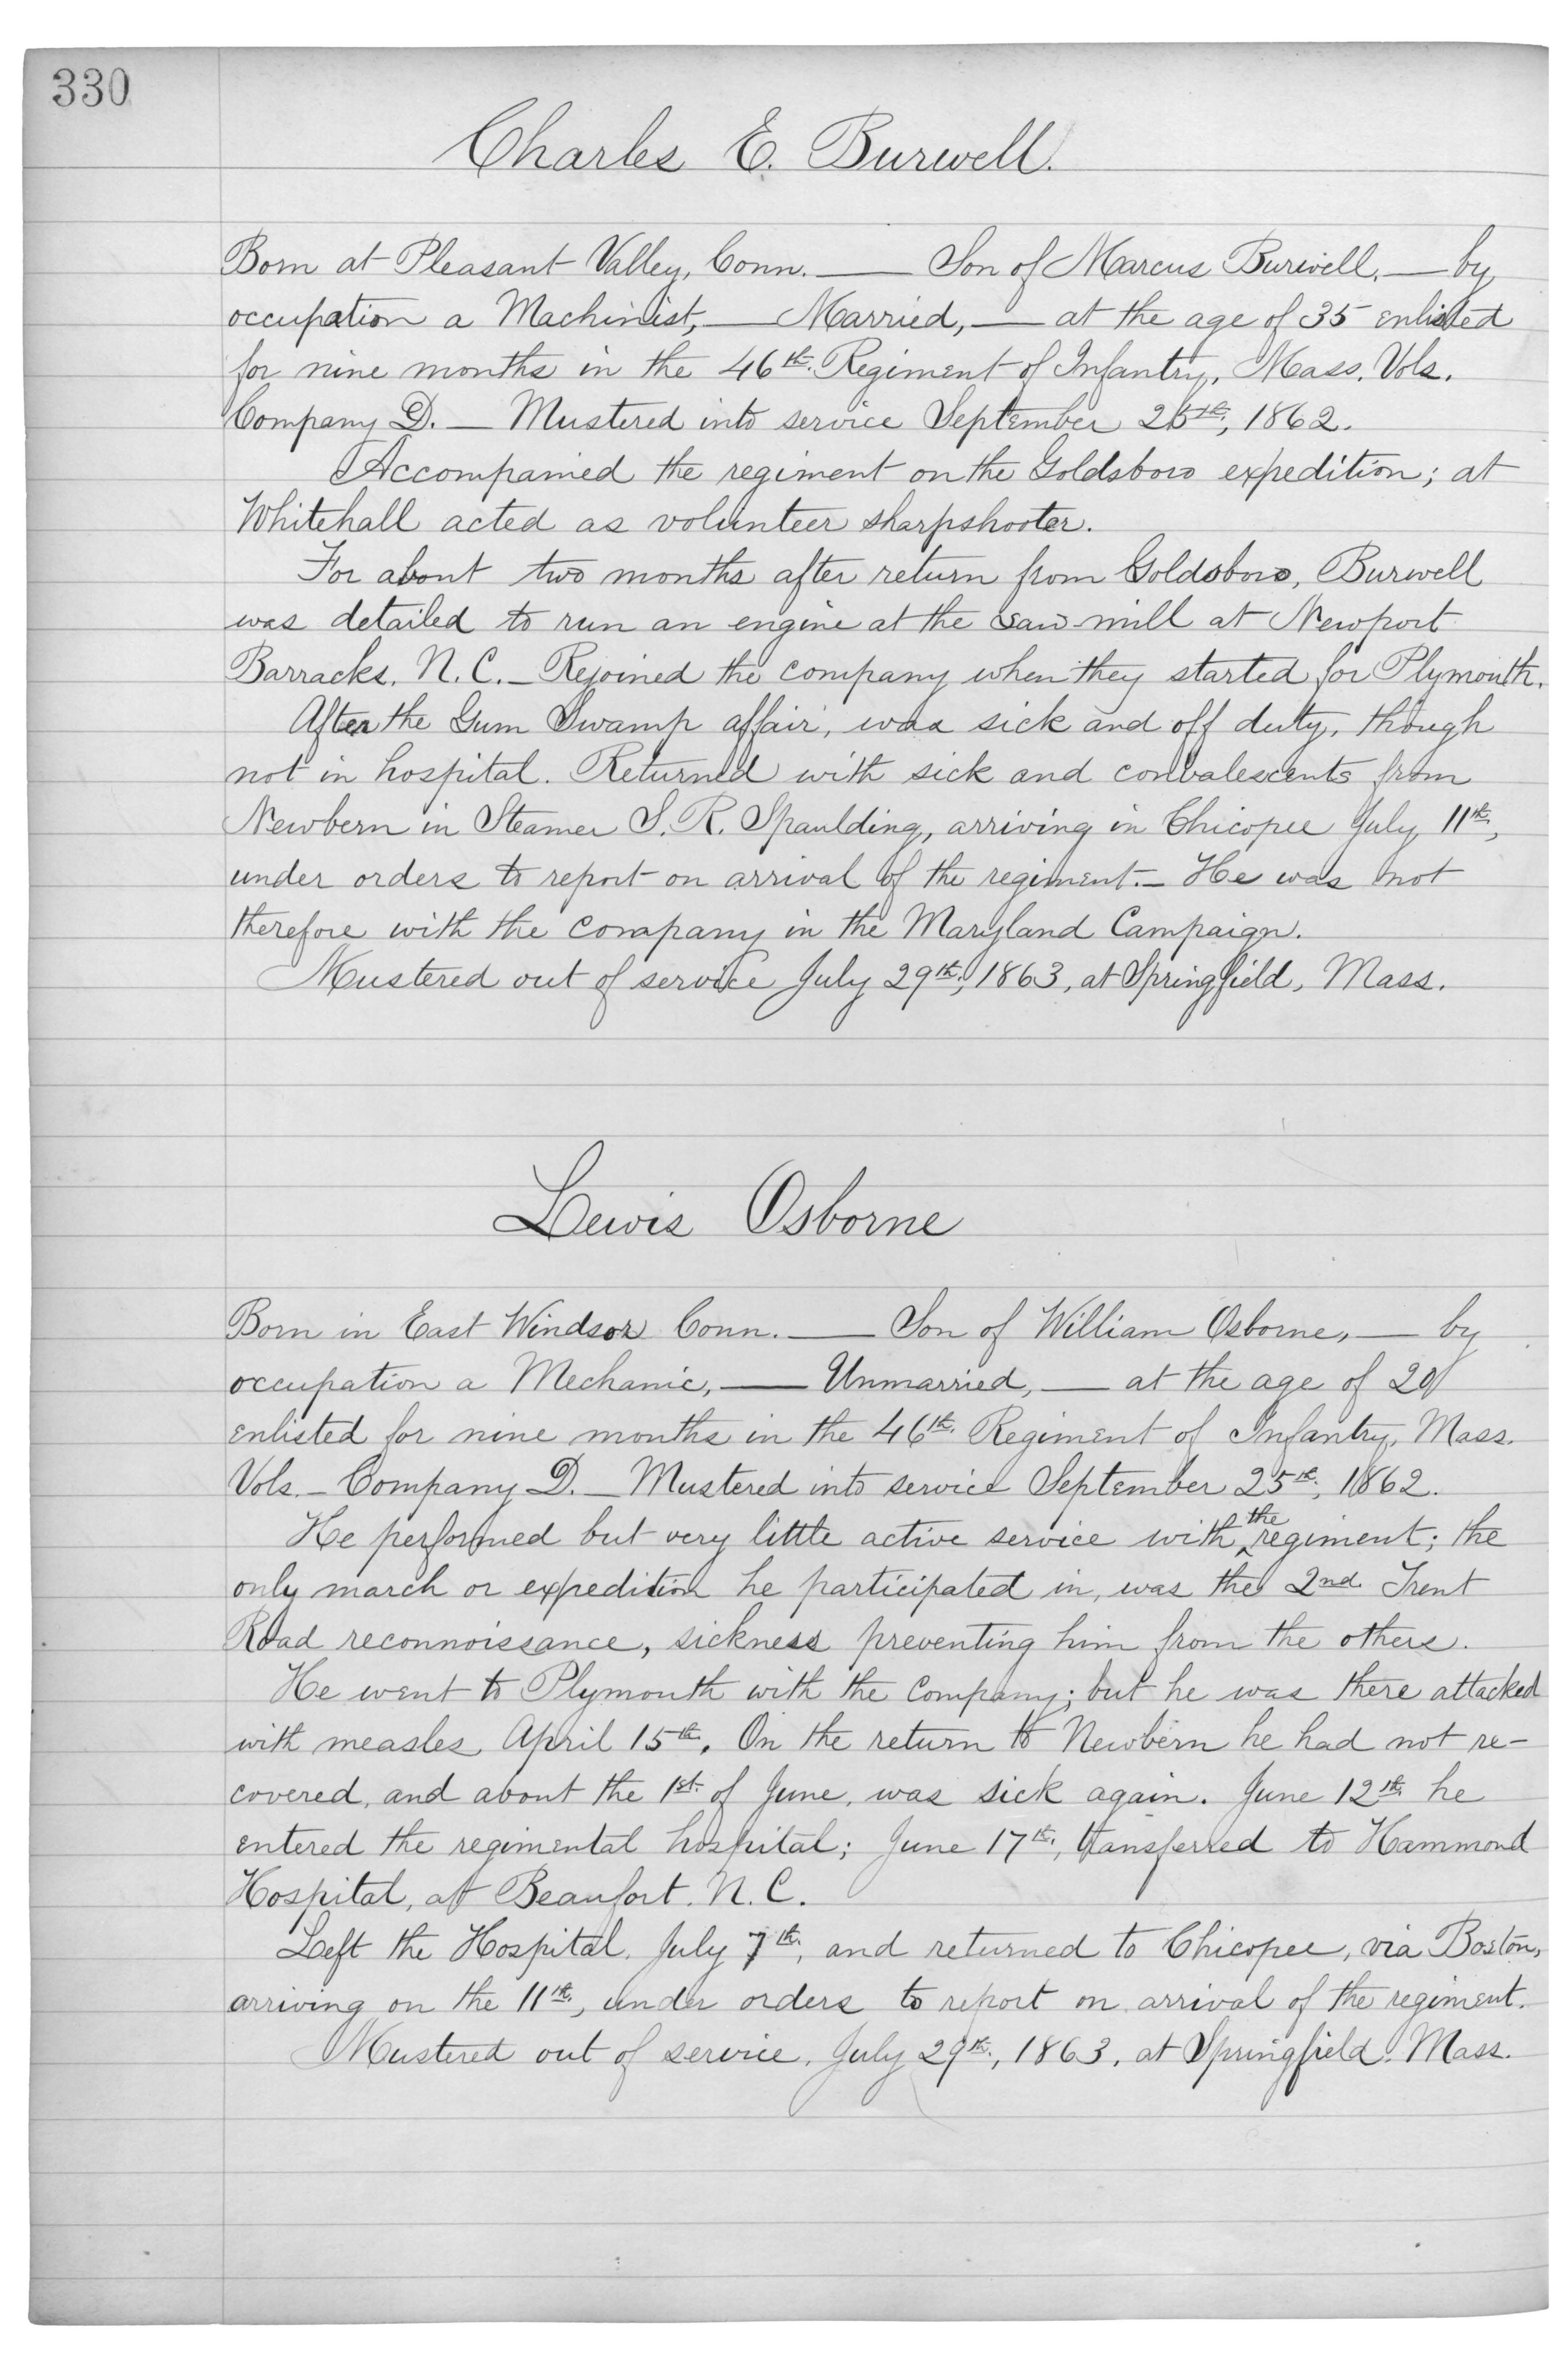 330
Charles E. Burwell.
Born at Pleasant Valley, Conn. — Son of Marcus Burwell, — by
occupation a Machinist, — Married, — at the age of 35 enlisted
for nine months in the 46th. Regiment of Infantry, Mass. Vols.
Company D. — Mustered into service September 25th, 1862.
Accompanied the regiment on the Goldsboro expedition; at
Whitehall acted as volunteer sharpshooter.
For about two months after return from Goldsboro, Burwell
was detailed to run an engine at the saw-mill at Newport
Barracks, N. C. — Rejoined the company when they started for Plymouth.
After the Gum Swamp affair, was sick and off duty, though
not in hospital. Returned with sick and convalescents from
Newbern in Steamer S. R. Spaulding, arriving in Chicopee July 11th,
under orders to report on arrival of the regiment. — He was not
therefore with the company in the Maryland Campaign.
Mustered out of service July 29th, 1863, at Springfield, Mass.
Lewis Osborne
Born in East Windsor Conn. — Son of William Osborne, — by
occupation a Mechanic, — Unmarried, — at the age of 20
enlisted for nine months in the 46th. Regiment of Infantry, Mass.
Vols. — Company D. — Mustered into service September 25th, 1862.
He performed but very little active service with the regiment; the
only march or expedition he participated in, was the 2nd Trent
Road reconnoissance, sickness preventing him from the others.
He went to Plymouth with the Company; but he was there attacked
with measles April 15th. On the return to Newbern he had not re-
covered, and about the 1st. of June, was sick again. June 12th he
entered the regimental hospital; June 17th, transferred to Hammond
Hospital, at Beaufort, N. C.
Left the Hospital, July 7th, and returned to Chicopee, via Boston,
arriving on the 11th, under orders to report on arrival of the regiment.
Mustered out of service, July 29th, 1863, at Springfield, Mass.